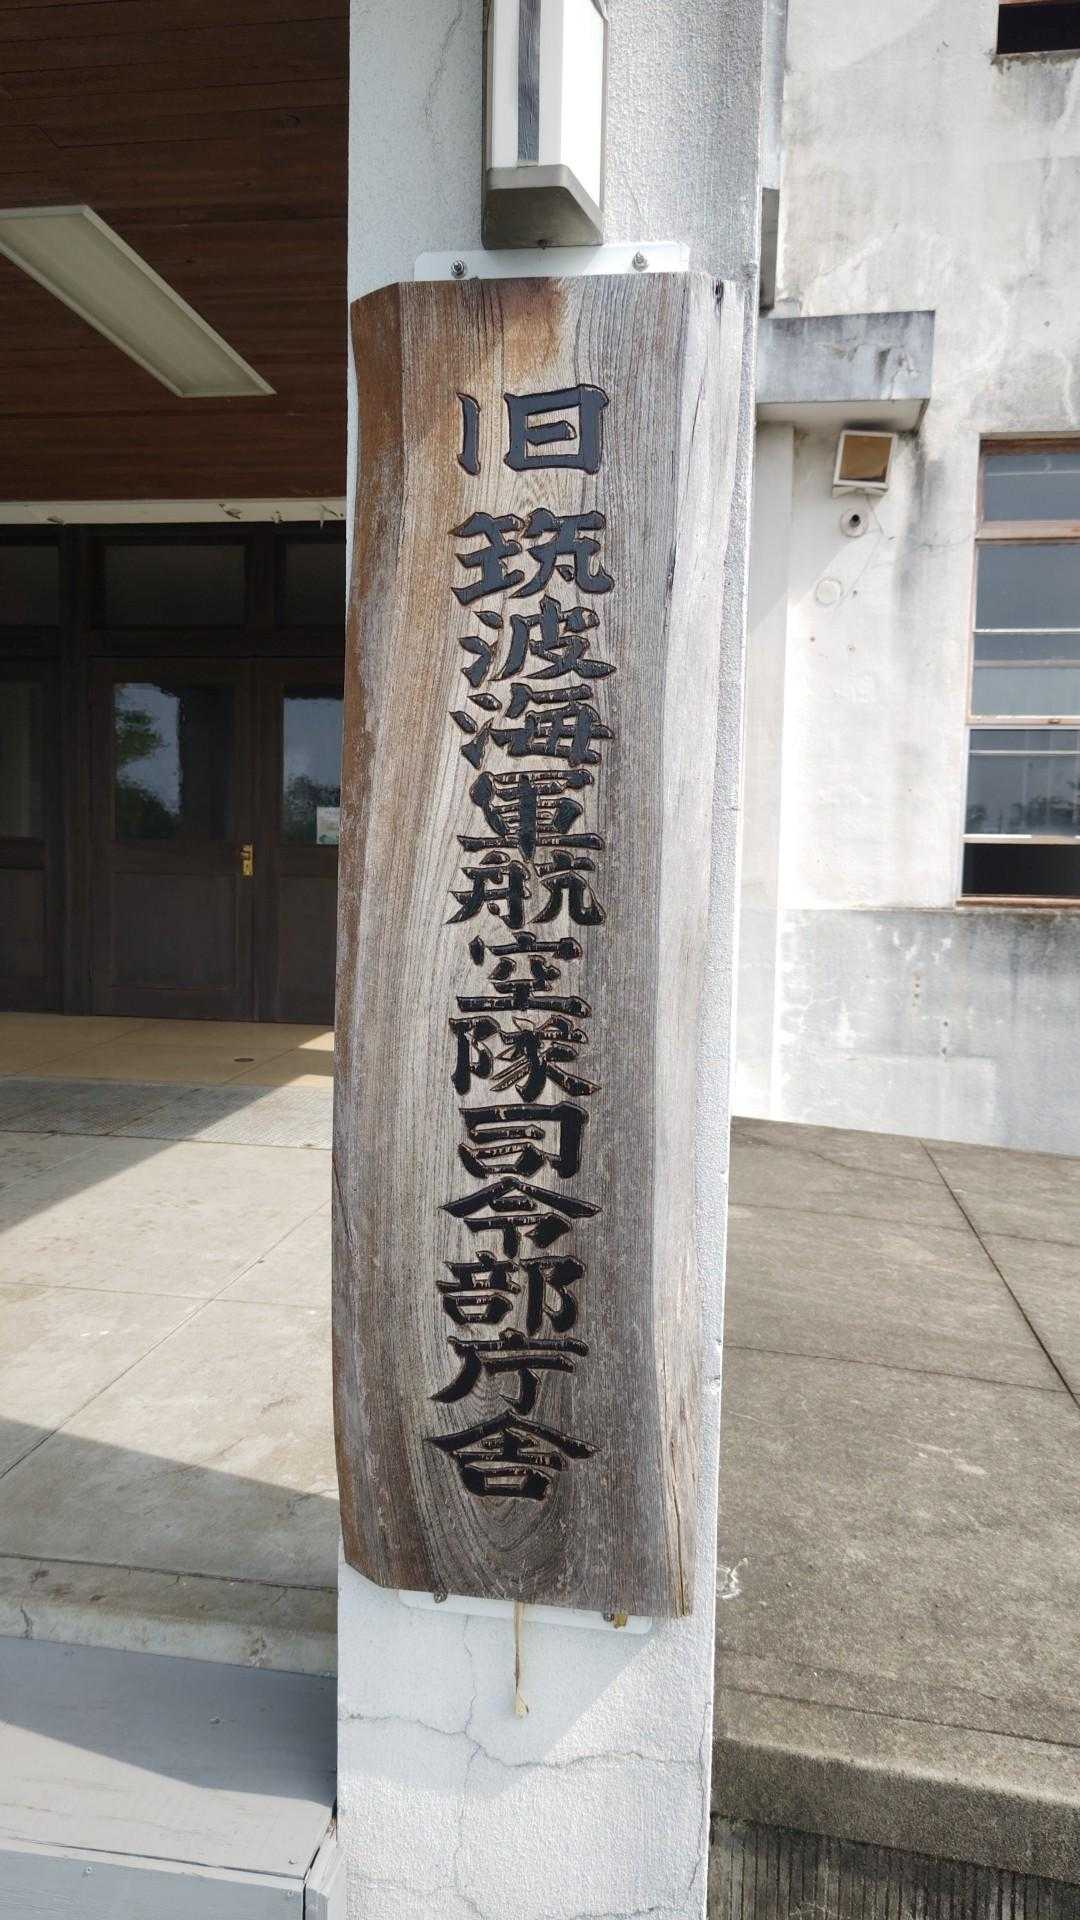 旧筑波海軍航空隊司令部庁舎